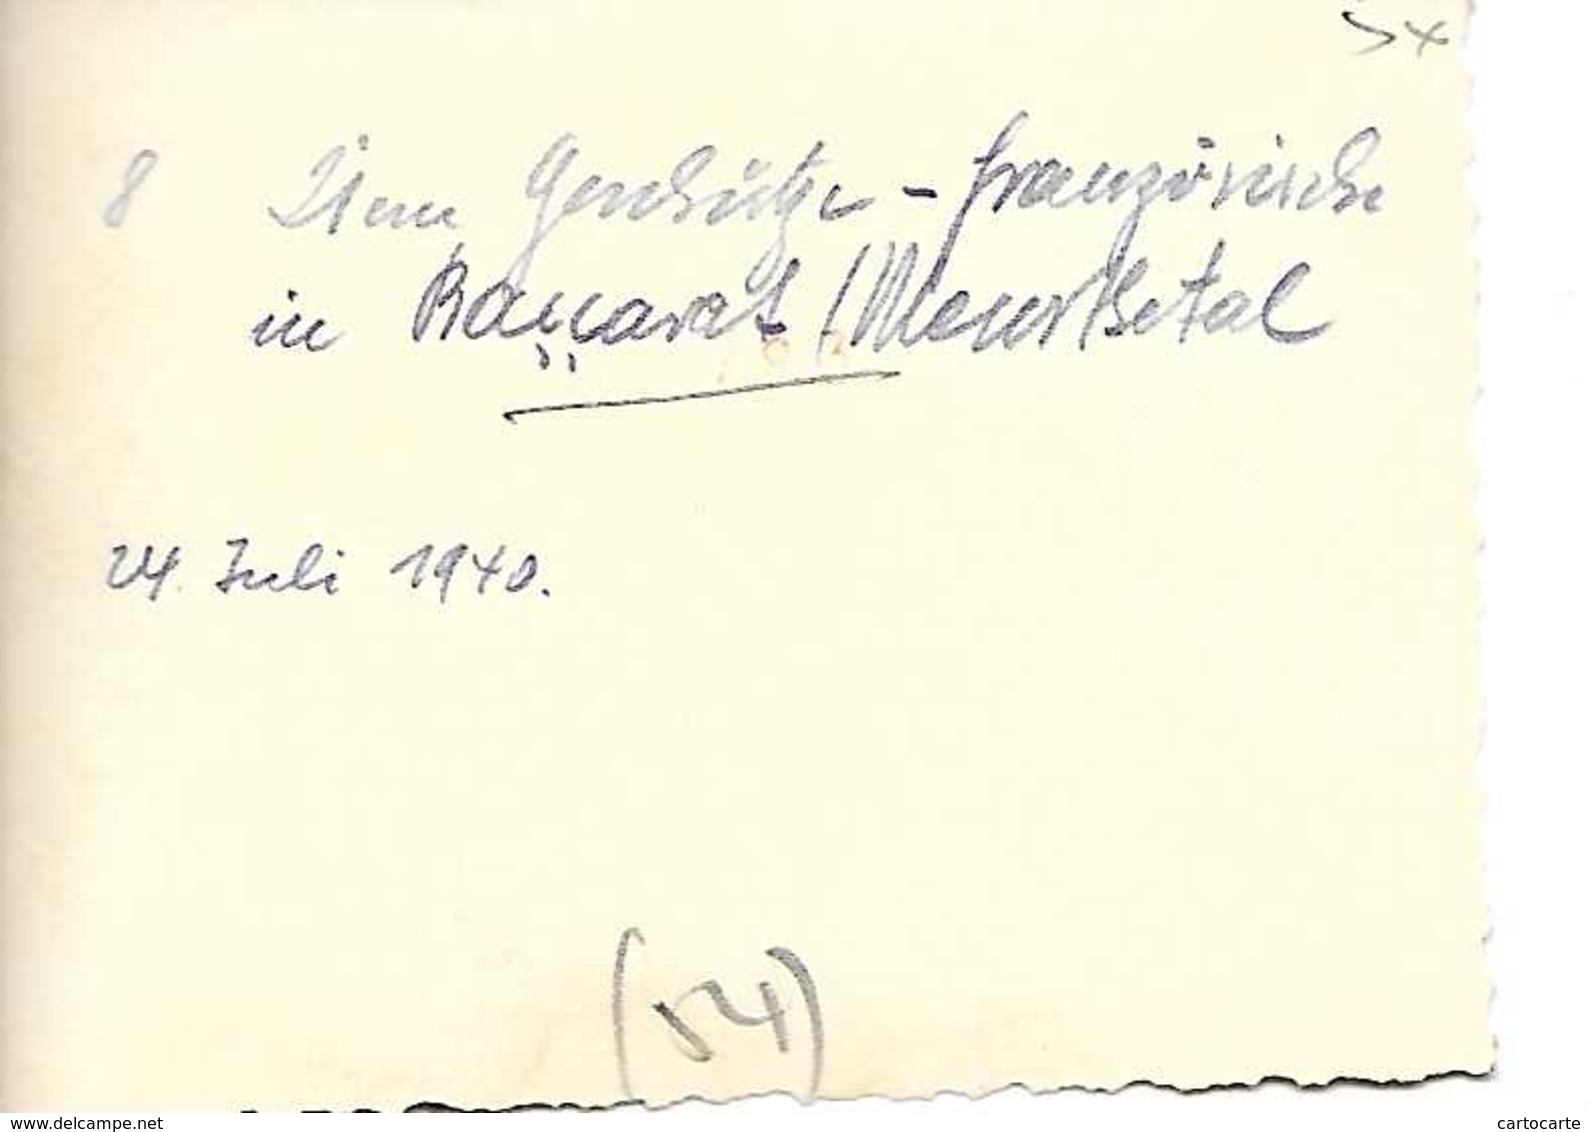 8 21 cm Geschütze - französische
in Baccarat / Meurthetal
24. Juli 1940.
(54)
www.delcampe.net
cartocarte